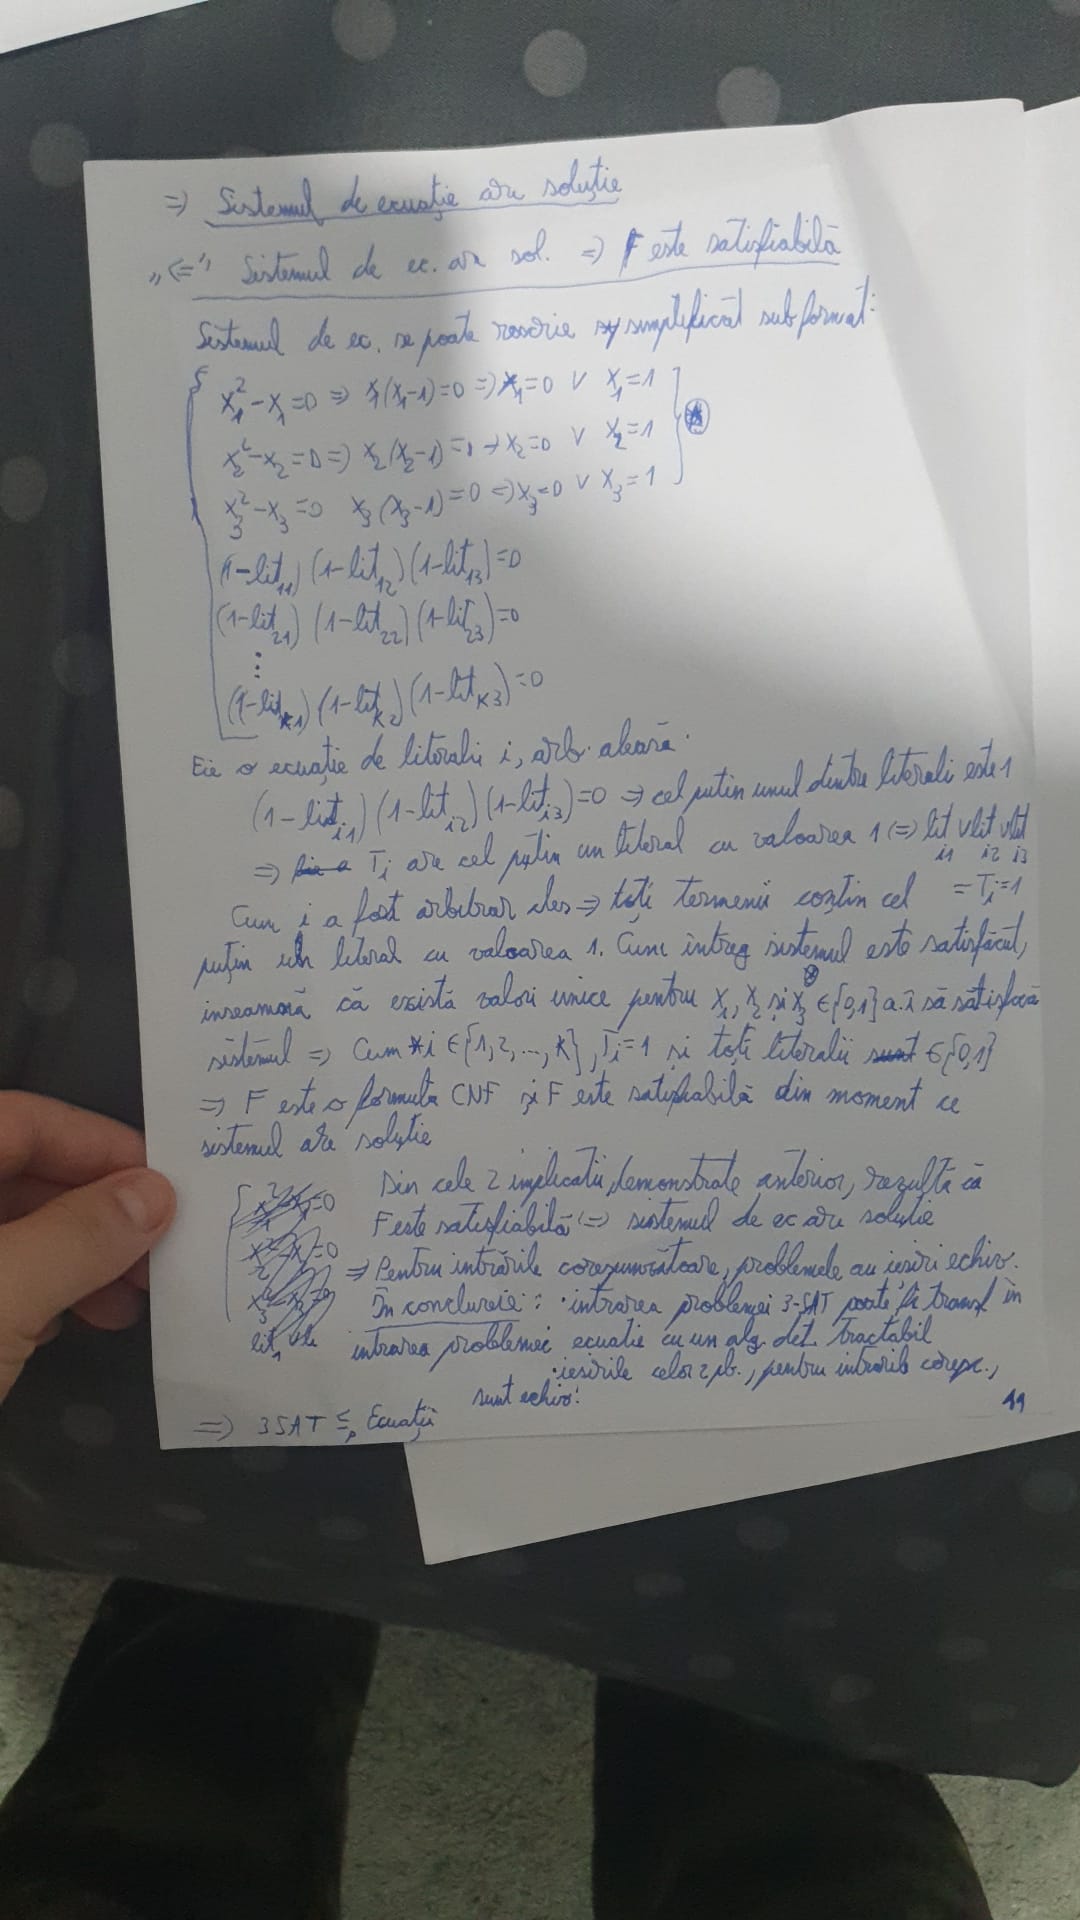 => Sistemul de ecuație are soluție
„<=" Sistemul de ec. are sol. => F este satisfiabilă
Sistemul de ec. se poate rescrie simplificat sub format:
x₁²-x₁=0 => x₁(x₁-1)=0 => x₁=0 ∨ x₁=1
x₂²-x₂=0 => x₂(x₂-1)=0 → x₂=0 ∨ x₂=1
x₃²-x₃=0 x₃(x₃-1)=0 => x₃=0 ∨ x₃=1
(1-lit₁₁)(1-lit₁₂)(1-lit₁₃)=0
(1-lit₂₁)(1-lit₂₂)(1-lit₂₃)=0
⋮
(1-lit_K1)(1-lit_K2)(1-lit_K3)=0
Fie o ecuație de literali i, arb. aleasă.
(1-lit_i1)(1-lit_i2)(1-lit_i3)=0 => cel putin unul dintre literali este 1
=> Ti are cel puțin un literal cu valoarea 1 <=> lit_i1 ∨ lit_i2 ∨ lit_i3
= Ti=1
Cum i a fost arbitrar ales => toți termenii conțin cel
puțin un literal cu valoarea 1. Cum întreg sistemul este satisfăcut,
inseamnă că există valori unice pentru x₁, x₂ și x₃ ∈{0,1} a.î să satisfacă
sistemul => Cum *i ∈{1,2,...,K}, Ti=1 și toți literalii ∈{0,1}
=> F este o formula CNF și F este satisfiabilă din moment ce
sistemul are soluție
Din cele 2 implicatii, demonstrate anterior, rezultă că
F este satisfiabilă <=> sistemul de ec are solutie
=> Pentru intrările corespunzătoare, problemele au iesiri echiv.
În concluzie: · intrarea problemei 3-SAT poate fi transf în
intrarea problemei ecuatie cu un alg. det. tractabil
· iesirile celor 2 pb., pentru intrarib coresp.,
sunt echiv.
=> 3SAT ≤p Ecuații
11